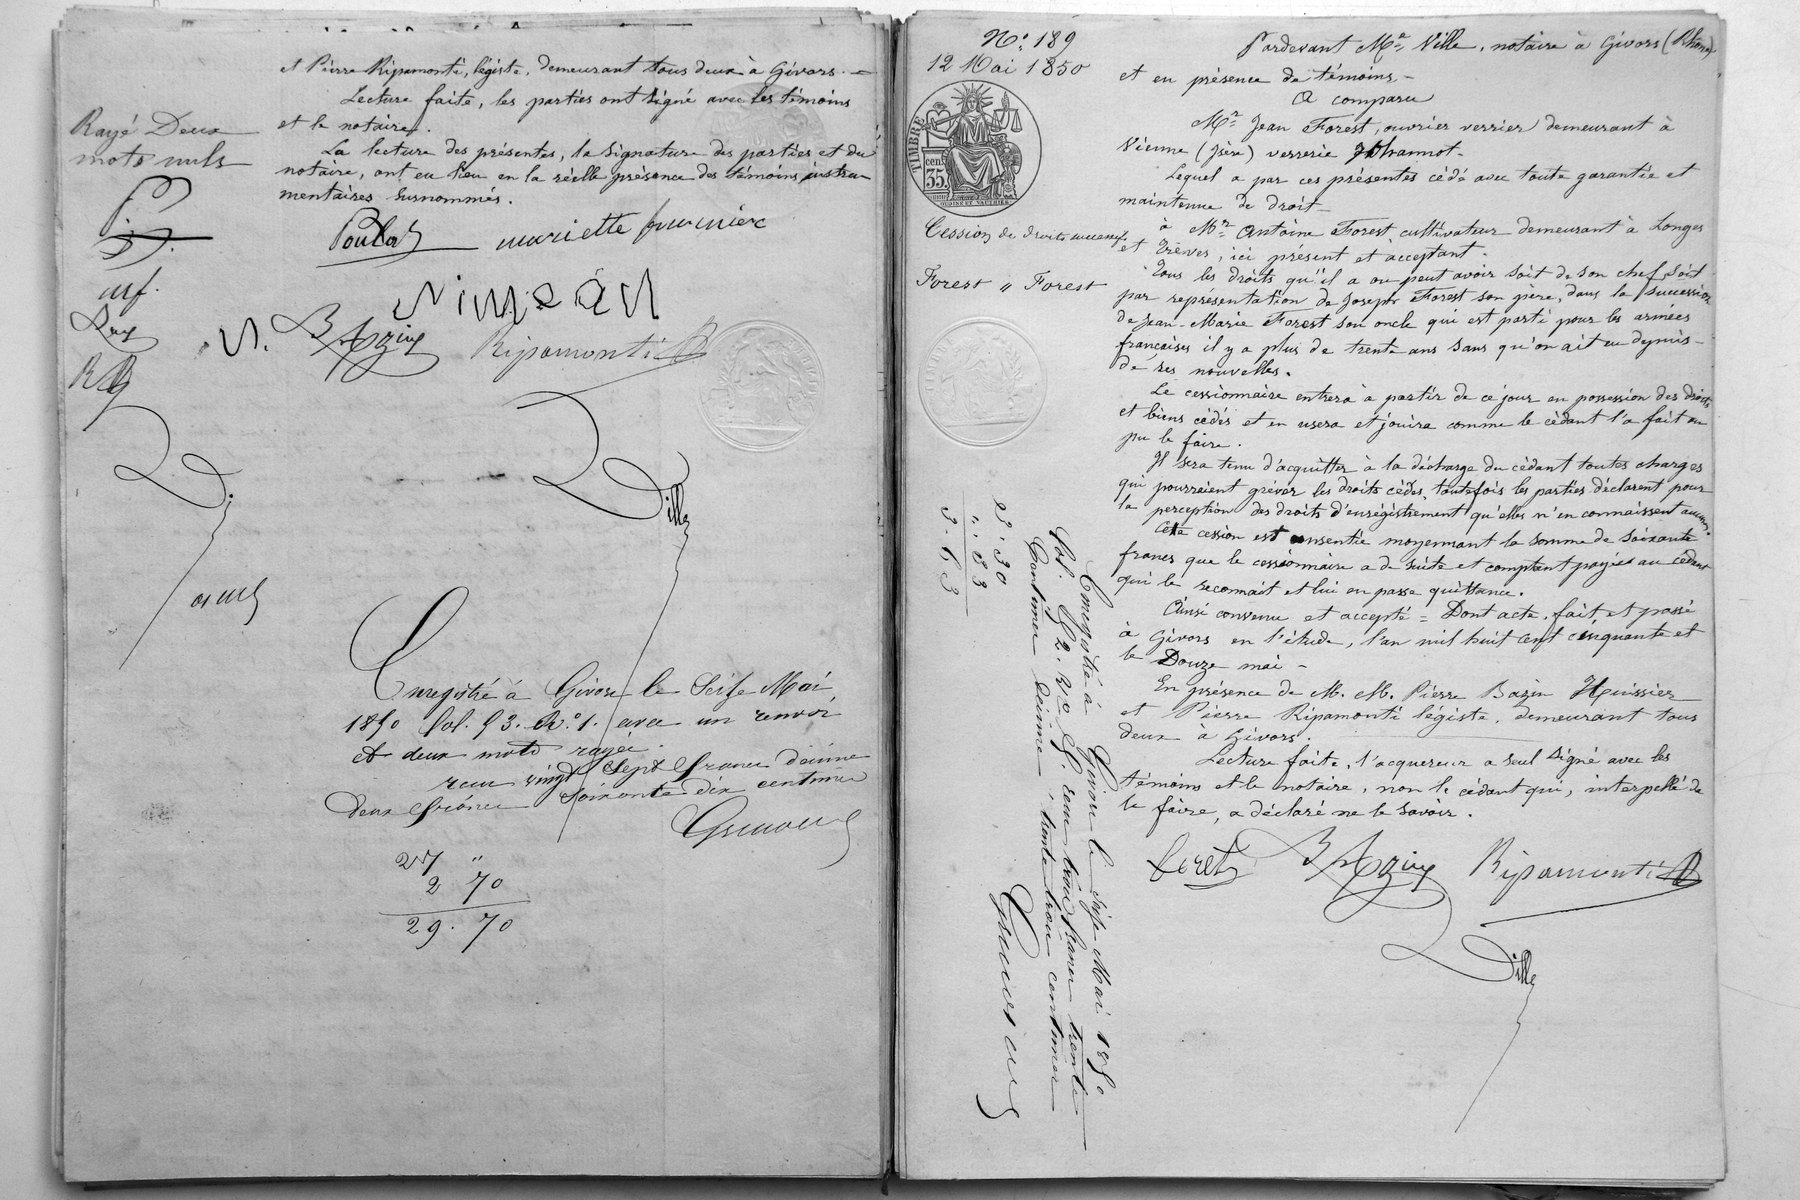 et Pierre Ripamonti, légiste, demeurant tous deux à Givors. —
Lecture faite, les parties ont signé avec les témoins
et le notaire.
La lecture des présentes, la signature des parties et du
notaire, ont eu lieu en la réelle présence des témoins instru-
mentaires surnommés.
Rayé Deux
mots nuls
mf.
RR
mariette fournier
Simeàn
BAzin Ripamonti
Ville
Enregistré à Givors le Seize Mai
1850 fol. 93. Ro. 1. avec un renvoi
et deux mots rayés.
reçu vingt sept francs décime
deux francs soixante dix centimes
27 "
2 70
29. 70
N° 189
12 Mai 1850
TIMBRE
35 cen.
Cession de droits successifs
Forest à Forest
3. 30
". 33
3. 63
Enregistré à Givors le seize Mai 1850
fol. 92. Vo. 5. reçu trois francs trente
centimes décime trente trois centimes
Pardevant Me Ville, notaire à Givors (Rhône)
et en présence de témoins —
A comparu
Mr Jean Forest, ouvrier verrier demeurant à
Vienne (Isère) verrerie
Lequel a par ces présentes cédé avec toute garantie et
maintenue de droit —
à Mr Antoine Forest cultivateur demeurant à Longes
et Trèves, ici présent et acceptant.
Tous les droits qu'il a ou peut avoir soit de son chef, soit
par représentation de Joseph Forest son père, dans la succession
de Jean-Marie Forest son oncle qui est parti pour les armées
françaises il y a plus de trente ans sans qu'on ait eu depuis —
de ses nouvelles.
Le cessionnaire entrera à partir de ce jour en possession des droits
et biens cédés et en usera et jouira comme le cédant l'a fait ou
pu le faire.
Il sera tenu d'acquitter à la décharge du cédant toutes charges
qui pourraient gréver les droits cédés, toutefois les parties déclarent pour
la perception des droits d'enrégistrement qu'elles n'en connaissent aucune.
Cette cession est consentie moyennant la somme de soixante
francs que le cessionnaire a de suite et comptant payés au cédant
qui le reconnait et lui en passe quittance.
Ainsi convenu et accepté = Dont acte, fait et passé
à Givors en l'étude, l'an mil huit cent cinquante et
le Douze mai —
En présence de M. M. Pierre Bazin Huissier
et Pierre Ripamonti légiste, demeurant tous
deux à Givors.
Lecture faite, l'acquereur a seul signé avec les
témoins et le notaire, non le cédant qui, interpellé de
le faire, a déclaré ne le savoir.
foret BAzin Ripamonti
Ville